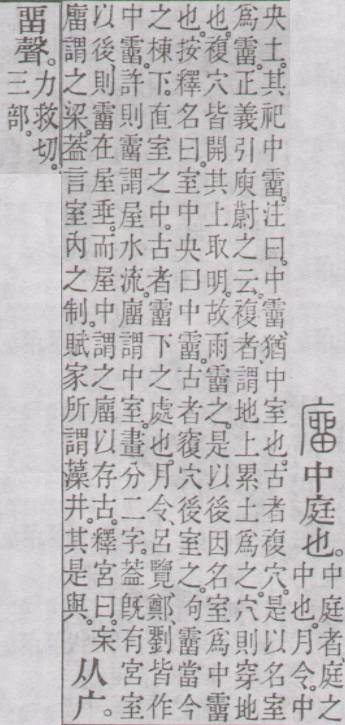 廇中庭也。
中庭者庭之
中也。月令。中
央土。其祀中霤。注曰。中霤猶中室也。古者複穴。是以名室
爲霤。正義引庾蔚之云。複者、謂地上累土爲之。穴則穿地
也。複穴皆開其上取明。故雨霤之。是以後因名室爲中霤
也。按釋名曰。室中央曰中霤。古者𥨍穴後室之。句霤當今
之棟下直室之中。古者霤下之處也。月令、呂覽鄭、劉皆作
中霤。許則霤謂屋水流。廇謂中室。畫分二字。葢旣有宮室
以後則霤在屋垂。而屋中謂之廇以存古。釋宮曰。杗
廇謂之梁。葢言室內之制。賦家所謂藻井。其是與。
从广。
畱聲。
力救切。
三部。